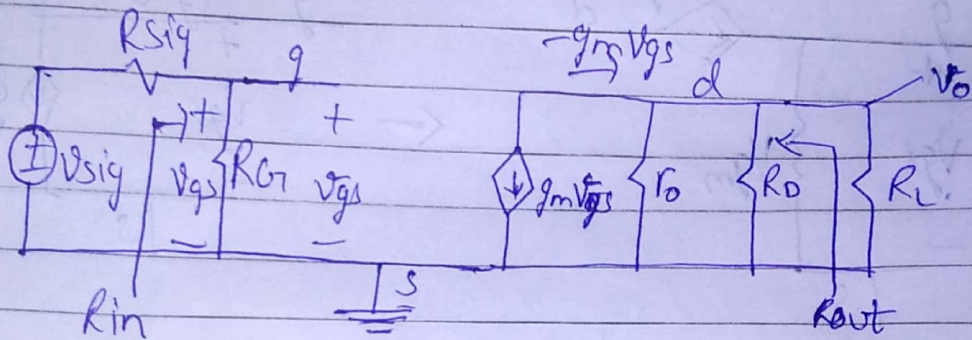 Rsig
g
-gmVgs
d
Vo
+
+
Vsig
Vgs
RG
Vgs
gmVgs
ro
RD
RL
-
-
S
Rin
Rout